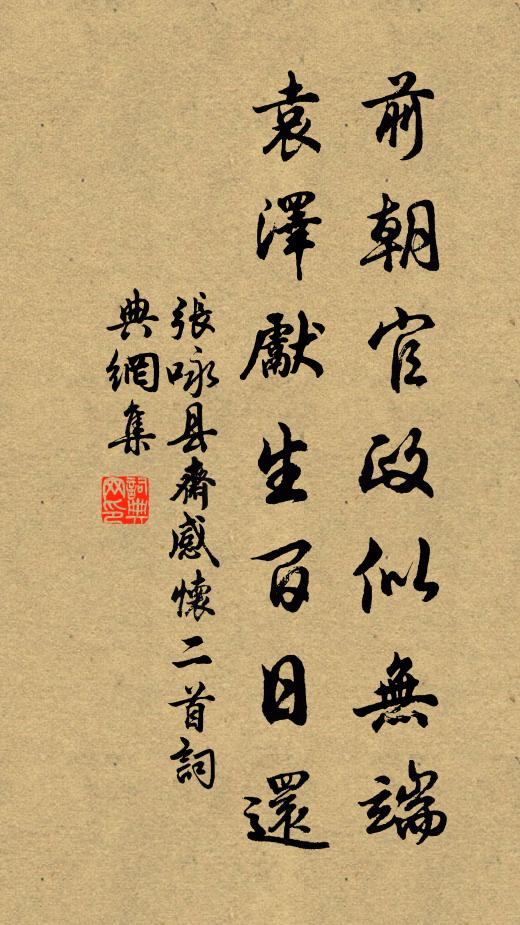 前朝官政似無端
袁澤獻生百日還
張咏县齋感懷二首詞
典網集
詞典網印